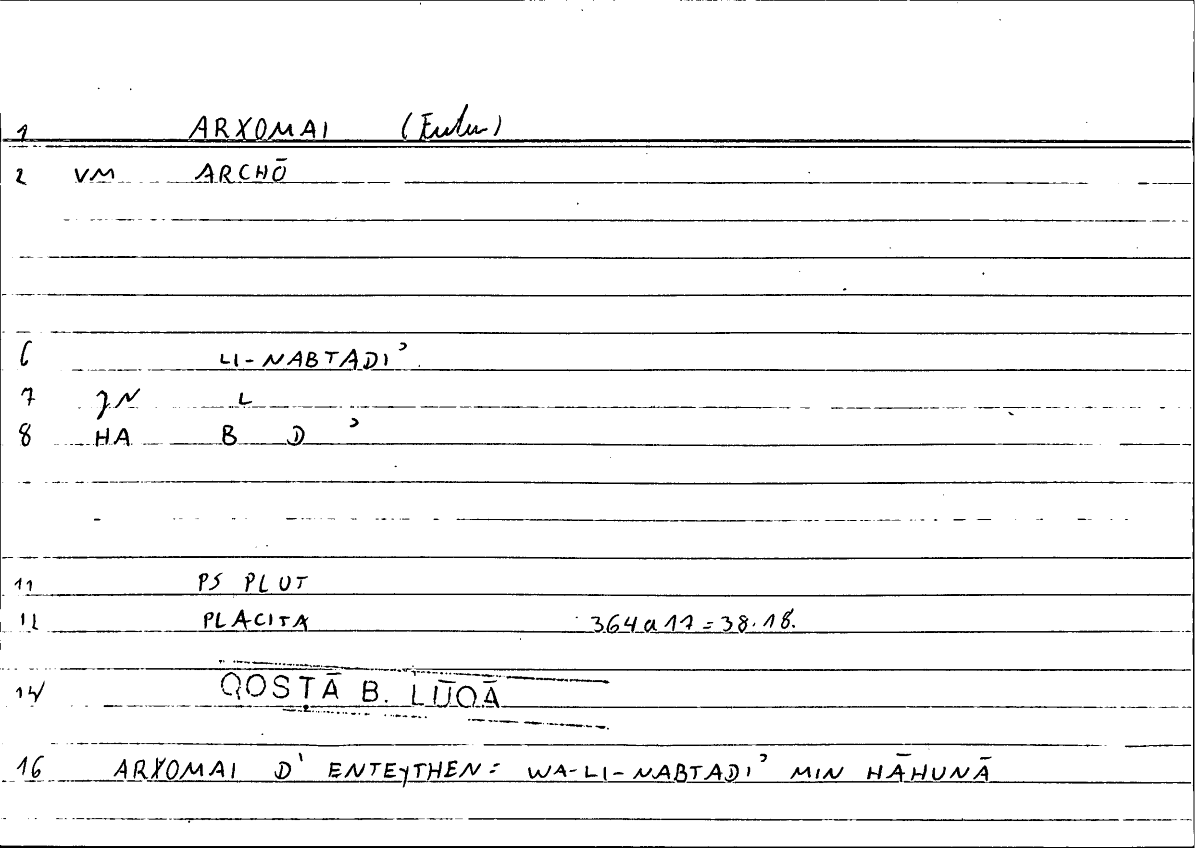 1 ARXOMAI
2 VM ARCHŌ
6 LI-NABTADI'
7 L
8 HA B D '
11 PS PLUT
12 PLACITA 364a17=38.18.
14 QOSṬĀ B. LŪQĀ
16 ARXOMAI D' ENTEYTHEN: WA-LI-NABTADI' MIN HĀHUNĀ